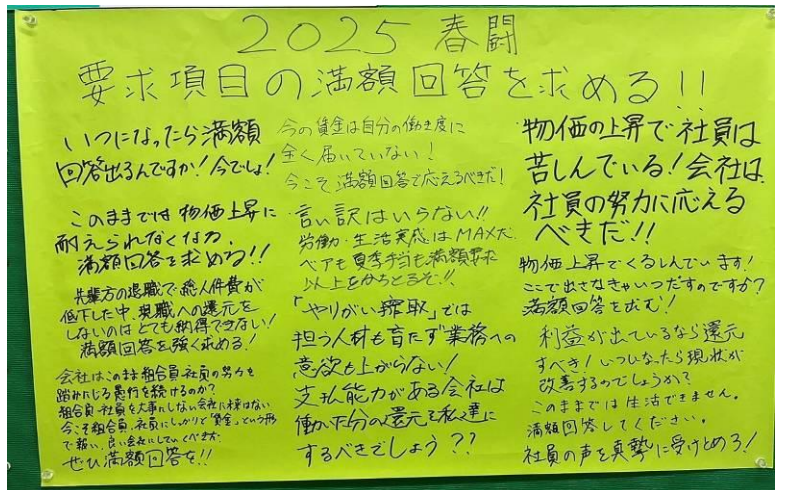 2025 春闘
要求項目の満額回答を求める!!
いつになったら満額
回答出るんですか!今でしょ!
このままでは物価上昇に
耐えられなくなる。
満額回答を求める!!
先輩方の退職で総人件費が
低下した中、現職への還元を
しないのはとても納得できない!
満額回答を強く求める!
会社はこのまま組合員・社員の努力を
踏みにじる愚行を続けるのか?
組合員・社員を大事にしない会社に未来はない
今こそ組合員、社員にしっかりと"賃金"という形
で報い、良い会社にしていくべきだ。
ぜひ満額回答を!!
今の賃金は自分の働き度に
全く届いていない!
今こそ満額回答で応えるべきだ!
言い訳はいらない!!
労働・生活実感はMAXだ。
ベアも夏季手当も満額要求
以上をかちとるぞ!!
「やりがい搾取」では
担う人材も育たず業務への
意欲も上がらない!
支払能力がある会社は
働いた分の還元を私達に
するべきでしょう??
物価の上昇で社員は
苦しんでいる!会社は
社員の努力に応える
べきだ!!
物価上昇でくるしんでいます!
ここで出さなきゃいつだすのですか?
満額回答をのぞむ!
利益が出ているなら還元
すべき!いつになったら現状が
改善するのでしょうか?
このままでは生活できません。
満額回答してください。
社員の声を真摯に受けとめろ!